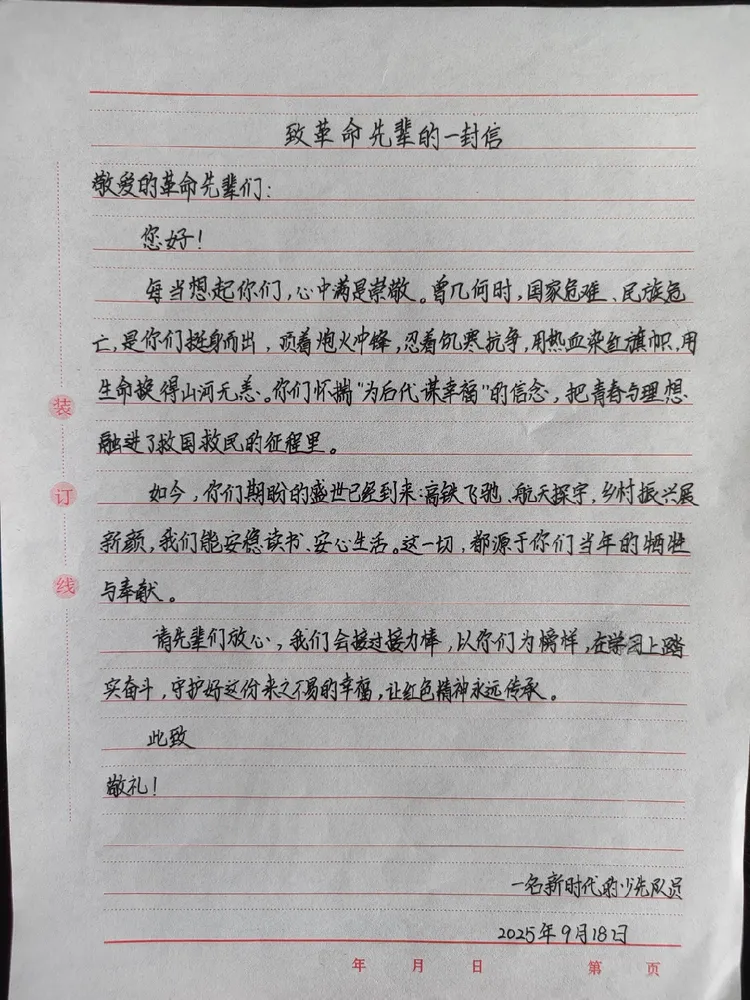 致革命先辈的一封信
敬爱的革命先辈们:
您好!
每当想起你们,心中满是崇敬。曾几何时,国家危难、民族危
亡,是你们挺身而出,顶着炮火冲锋,忍着饥寒抗争,用热血染红旗帜,用
生命换得山河无恙。你们怀揣"为后代谋幸福"的信念,把青春与理想
融进了救国救民的征程里。
如今,你们期盼的盛世已经到来:高铁飞驰、航天探宇,乡村振兴展
新颜,我们能安稳读书、安心生活。这一切,都源于你们当年的牺牲
与奉献。
请先辈们放心,我们会接过接力棒,以你们为榜样,在学习上踏
实奋斗,守护好这份来之不易的幸福,让红色精神永远传承。
此致
敬礼!
一名新时代的少先队员
2025年9月18日
年 月 日 第 页
装
订
线